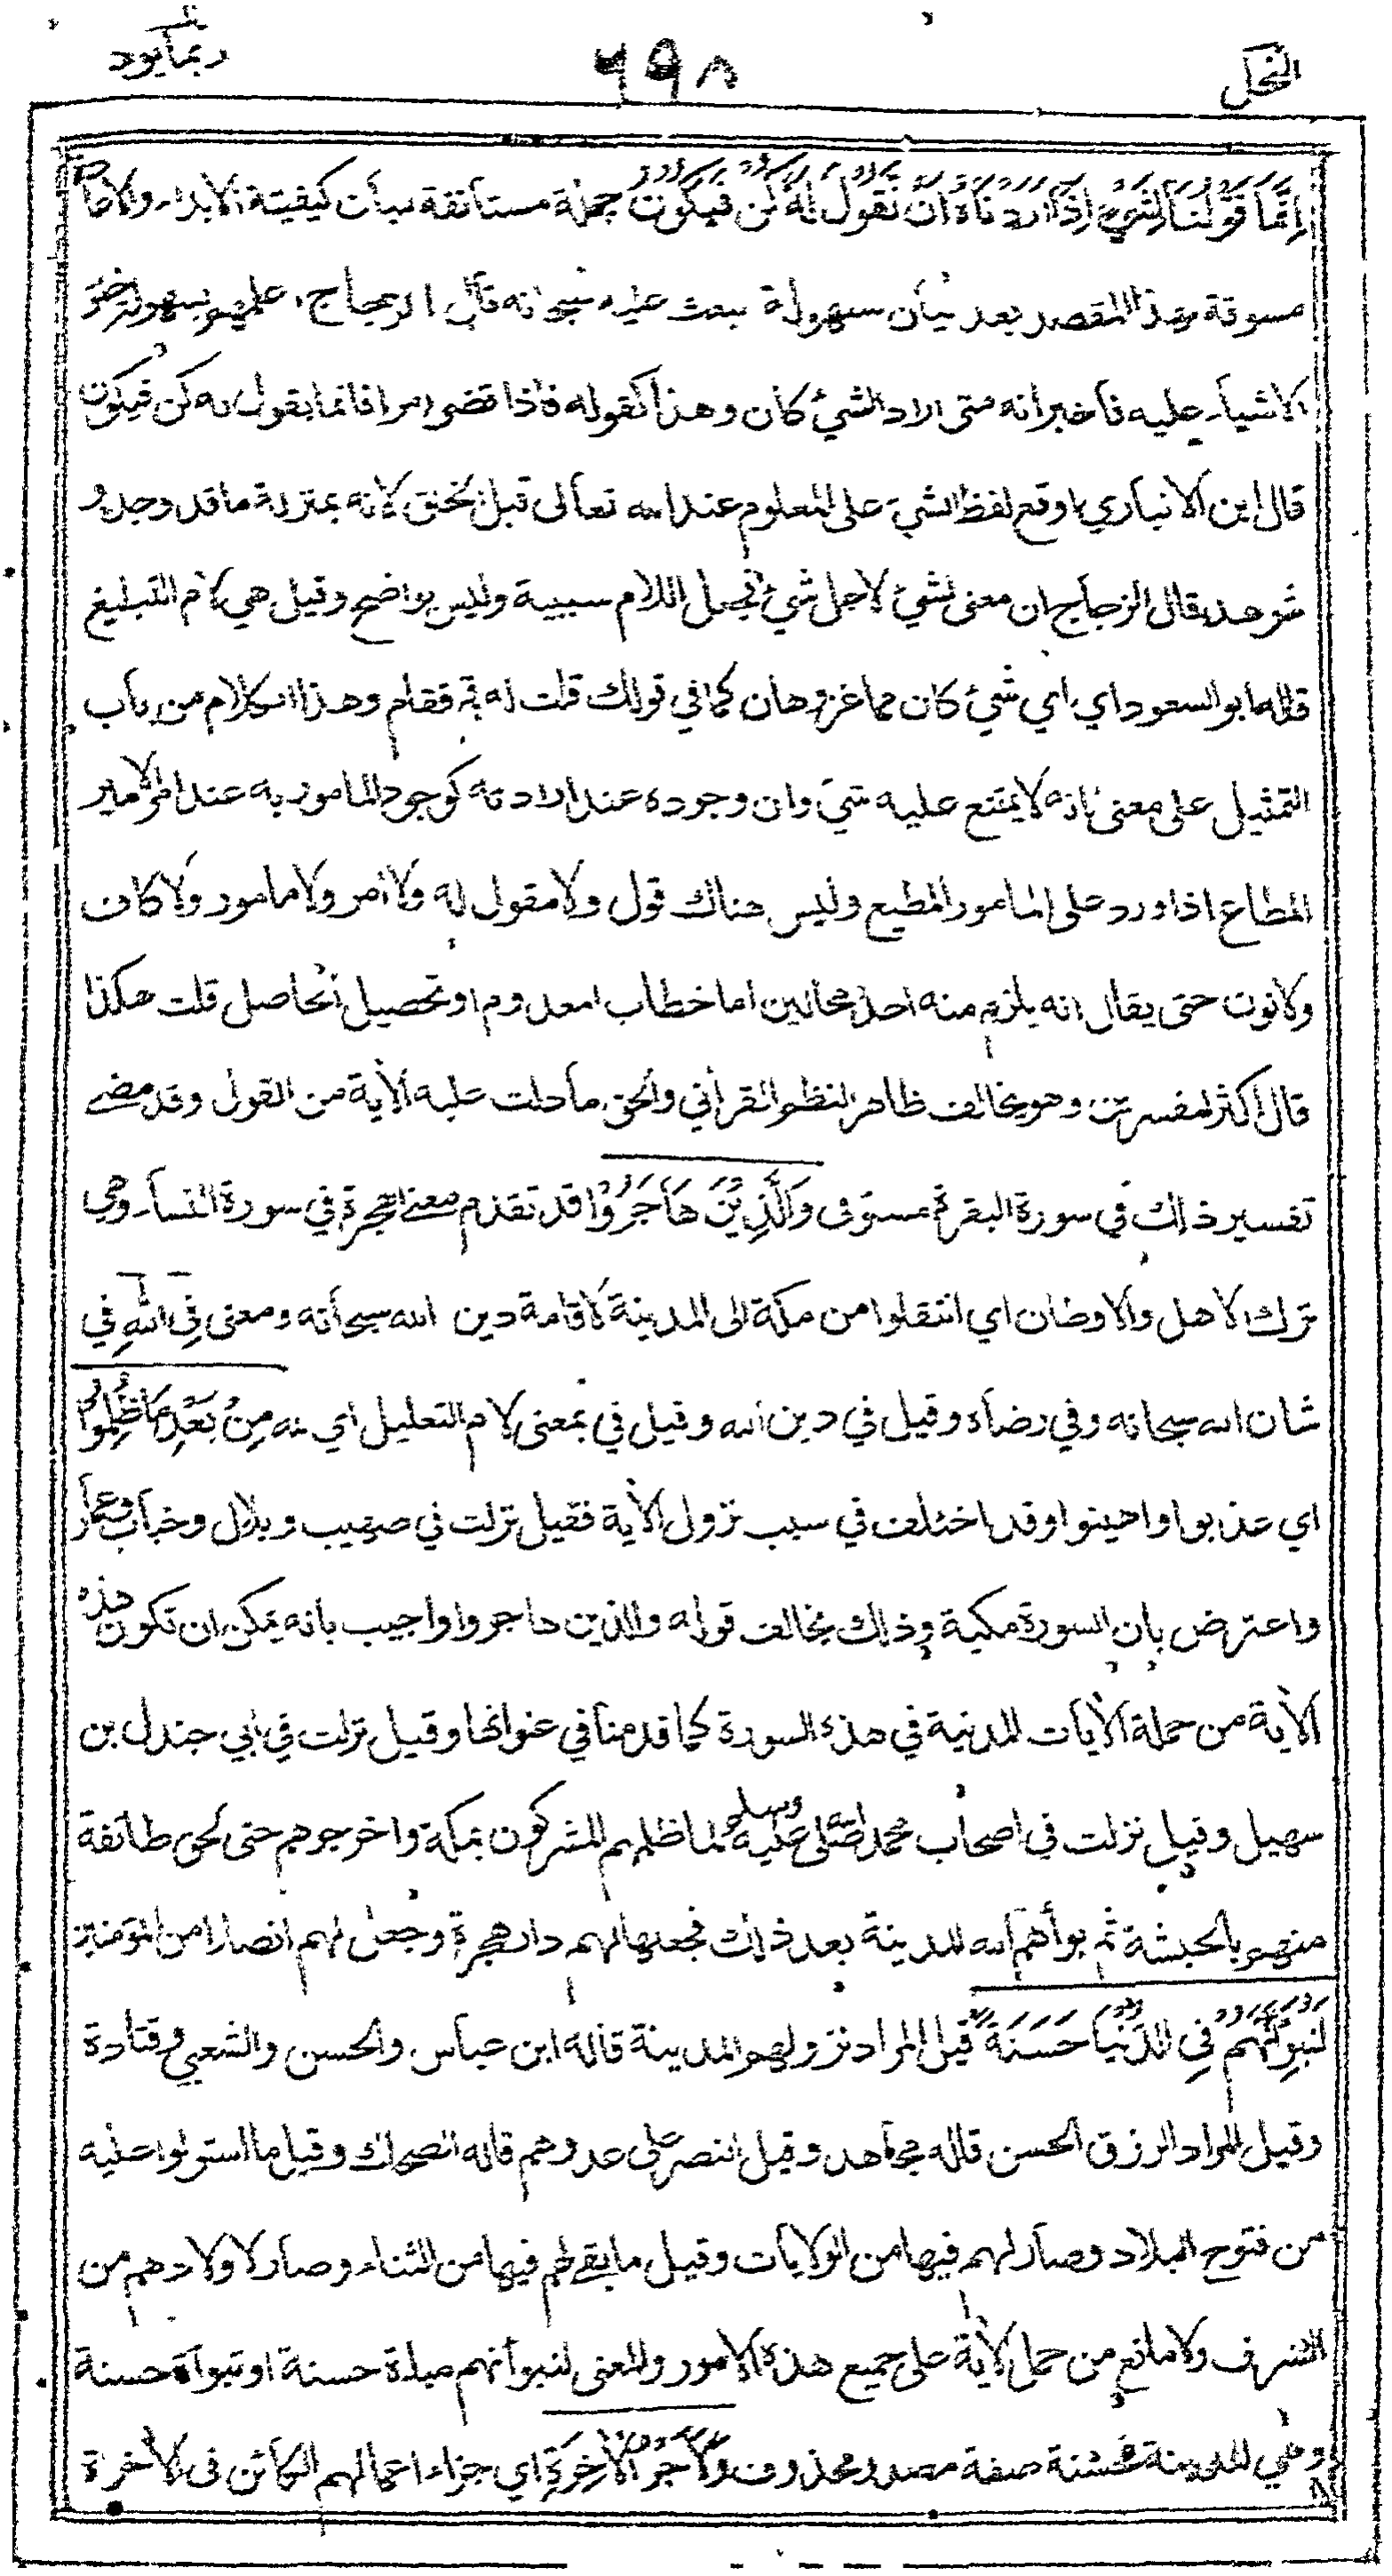 النحل
٦٩٨
ربمايود
إِنَّمَا قَوْلُنَا لِشَيْءٍ إِذَا أَرَدْنَاهُ أَنْ نَقُولَ لَهُ كُنْ فَيَكُونُ جملة مستأنفة لبيان كيفية الابداء والاعادة
مسوقة لهذا المقصد بعد بيان سهولة البعث عليه سبحانه قال الزجاج اعلمهم بسهولة خلق
الاشياء عليه فاخبر انه متى اراد الشيء كان وهذا كقوله فاذا قضى امرا فانما يقول له كن فيكون
قال ابن الانباري اوقع لفظ الشيء على المعلوم عند الله تعالى قبل الخلق لانه بمنزلة ما قد وجد و
شوهد وقال الزجاج ان معنى لشيء لاجل شيء فجعل اللام سببية وليس بواضح وقيل هي لام التبليغ
قاله ابو السعود اي اي شيء كان مما عز وهان كما في قولك قلت له قم فقام وهذا الكلام من باب
التمثيل على معنى انه لا يمتنع عليه شيء وان وجوده عند ارادته كوجود المامور به عند امر الامير
المطاع اذا ورد على المامور المطيع وليس هناك قول ولا مقول له ولا امر ولا مامور ولا كاف
ولا نون حتى يقال انه يلزم منه احد محالين اما خطاب المعدوم او تحصيل الحاصل قلت هكذا
قال اكثر المفسرين وهو يخالف ظاهر النظم القراني والحق ما دلت عليه الآية من القول وقد مضى
تفسير ذلك في سورة البقرة مستوفى وَالَّذِينَ هَاجَرُوا قد تقدم معنى الهجرة في سورة النساء وهي
ترك الاهل والاوطان اي انتقلوا من مكة الى المدينة لاقامة دين الله سبحانه ومعنى فِي اللهِ في
شان الله سبحانه وفي رضاه وقيل في دين الله وقيل في بمعنى لام التعليل اي لله مِنْ بَعْدِ مَا ظُلِمُوا
اي عذبوا واهينوا وقد اختلف في سبب نزول الآية فقيل نزلت في صهيب وبلال وخباب وعمار
واعترض بان السورة مكية وذلك يخالف قوله والذين هاجروا واجيب بانه يمكن ان تكون هذه
الآية من جملة الآيات المدنية في هذه السورة كما قدمنا في عنوانها وقيل نزلت في ابي جندل بن
سهيل وقيل نزلت في اصحاب محمد صلى الله عليه وسلم لما ظلمهم المشركون بمكة واخرجوهم حتى لحق طائفة
منهم بالحبشة ثم بوأهم الله المدينة بعد ذلك فجعلها لهم دار هجرة وجعل لهم انصارا من المؤمنين
لَنُبَوِّئَنَّهُمْ فِي الدُّنْيَا حَسَنَةً قيل المراد نزولهم المدينة قاله ابن عباس والحسن والشعبي وقتادة
وقيل المراد الرزق الحسن قاله مجاهد وقيل النصر على عدوهم قاله الضحاك وقيل ما استولوا عليه
من فتوح البلاد وصار لهم فيها من الولايات وقيل ما بقي لهم فيها من الثناء وصار لاولادهم من
الشرف ولا مانع من حمل الآية على جميع هذه الامور والمعنى لنبوأنهم مباءة حسنة او تبوأة حسنة
وهي المدينة فحسنة صفة مصدر محذوف وَلَأَجْرُ الْآخِرَةِ اي جزاء اعمالهم الكائن في الآخرة